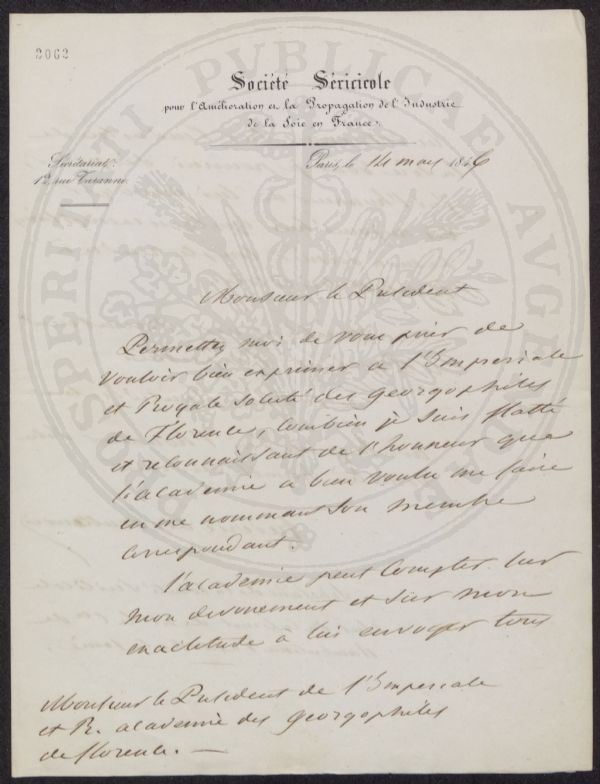 2062
PROSPERITATI PUBLICAE AUGENDAE
Société Séricicole
pour l'Amélioration et la Propagation de l'Industrie
de la Soie en France.
Secrétariat:
12, rue Taranne.
Paris, le 14 mars 1846
Monsieur le Président
Permettez moi de vous prier de
vouloir bien exprimer à l'Imperiale
et Royale Société des georgophiles
de Florence, combien je suis flatté
et reconnaissant de l'honneur que
l'académie a bien voulu me faire
en me nommant son membre
correspondant.
l'académie peut compter sur
mon devouement et sur mon
exactitude à lui envoyer tous
Monsieur le Président de l'Imperiale
et R. academie des georgophiles
de florence. —